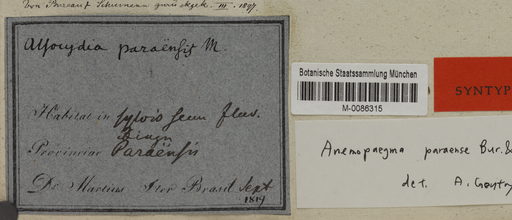 Von Bureau & Schumann zurückgek. III. 1897.
Alsocydia paraënsis M.
Habitat in sylvis secus fluv.
Provinciae Paraënsis
Dr. Martius Iter Brasil Sept
1819
Botanische Staatssammlung München
M-0086315
SYNTYP
Anemopaegma paraense Bur. &
det. A. Gentry